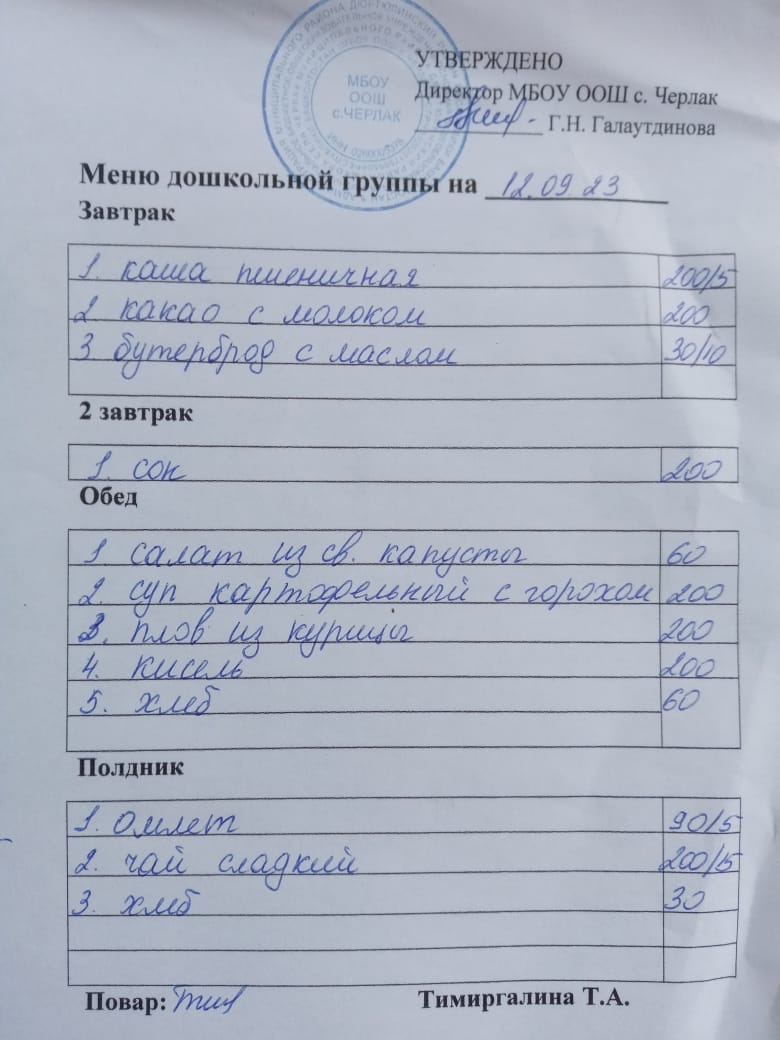 УТВЕРЖДЕНО
Директор МБОУ ООШ с. Черлак
Г.Н. Галаутдинова
МБОУ
ООШ
с.ЧЕРЛАК
Меню дошкольной группы на 12.09.23
Завтрак
1. каша пшеничная 200/5
2 какао с молоком 200
3 бутерброд с маслом 30/10
2 завтрак
1. сок 200
Обед
1 салат из св. капусты 60
2. суп картофельный с горохом 200
3. плов из курицы 200
4. кисель 200
5. хлеб 60
Полдник
1. омлет 90/5
2. чай сладкий 200/15
3. хлеб 30
Повар: Тимиргалина Т.А.